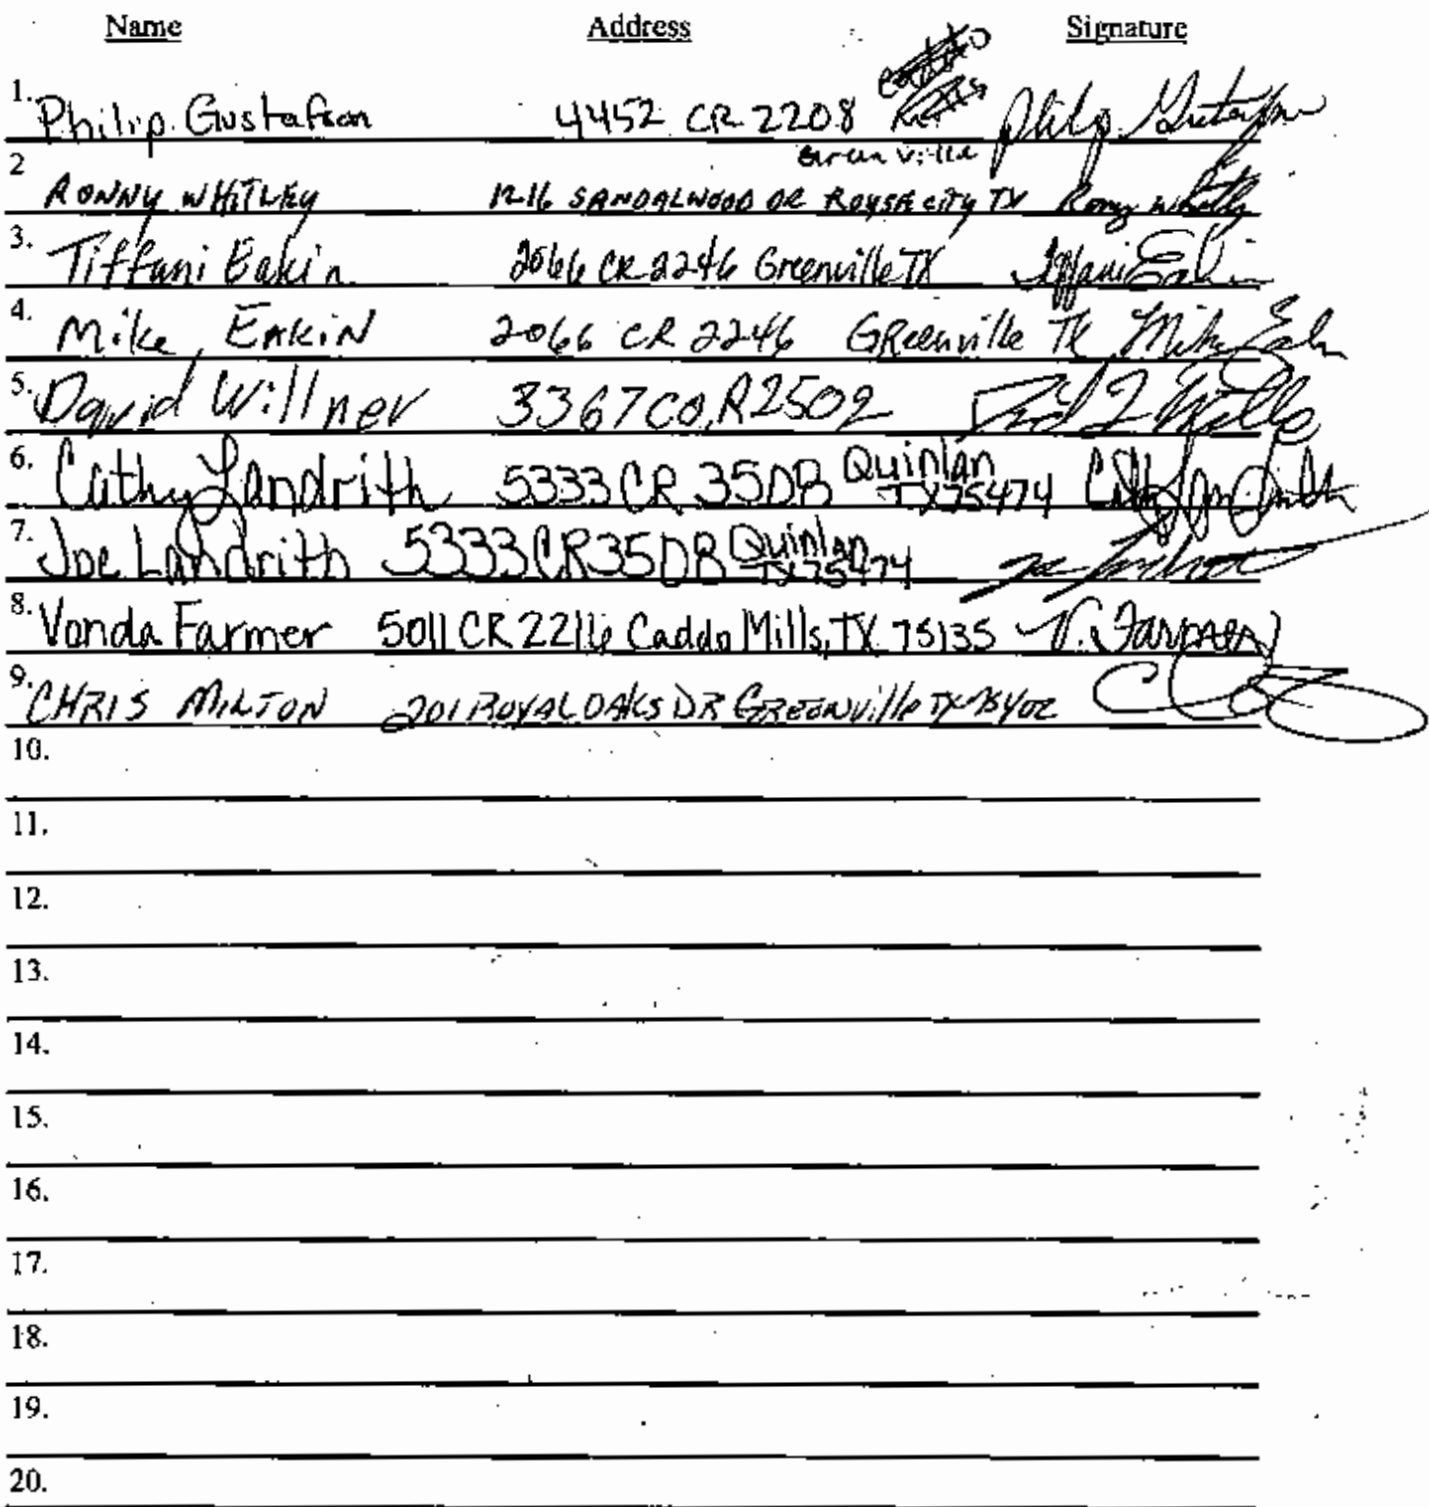 Name Address Signature
1. Philip Gustafson 4452 CR 2208 Philip Gustafson
Greenville
2 RONNY WHITLEY 1216 SANDALWOOD DR ROYSE CITY TX Rony Whitley
3. Tiffani Eakin 2066 CR 2246 Greenville TX Tiffani Eakin
4. Mike EAKIN 2066 CR 2246 GReenville TX Mike Eakin
5. David Willner 3367 CO. R2502
6. Cathy Landrith 5333 CR 35DB Quinlan TX 75474 Cathy Landrith
7. Joe Landrith 5333 CR 35DB Quinlan TX 75474
8. Vonda Farmer 5011 CR 2216 Caddo Mills, TX 75135 V. Farmer
9. CHRIS MILTON 201 ROYAL OAKS DR GREENville TX 75402
10.
11.
12.
13.
14.
15.
16.
17.
18.
19.
20.